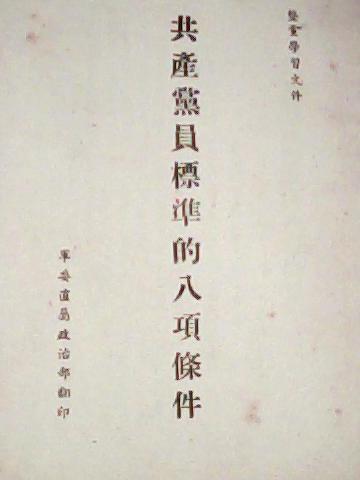 整党學習文件
共產黨員標準的八項條件
軍委直屬政治部翻印